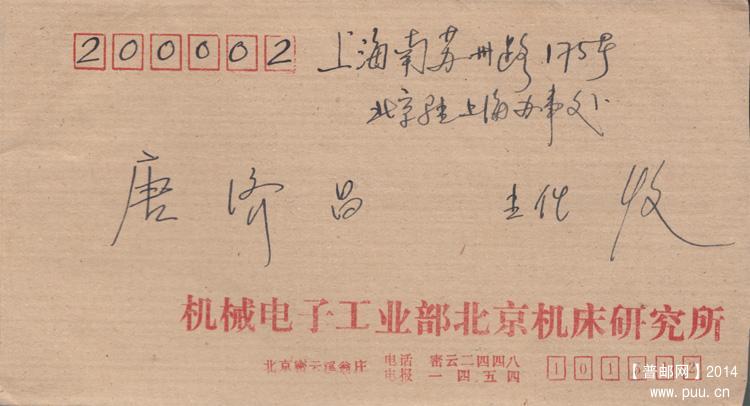 200002
上海南苏州路175号
北京驻上海办事处
唐济昌 主任 收
机械电子工业部北京机床研究所
北京密云溪翁庄 电话 密云二四四八
电报 一四五四
【普邮网】2014
www.puu.cn